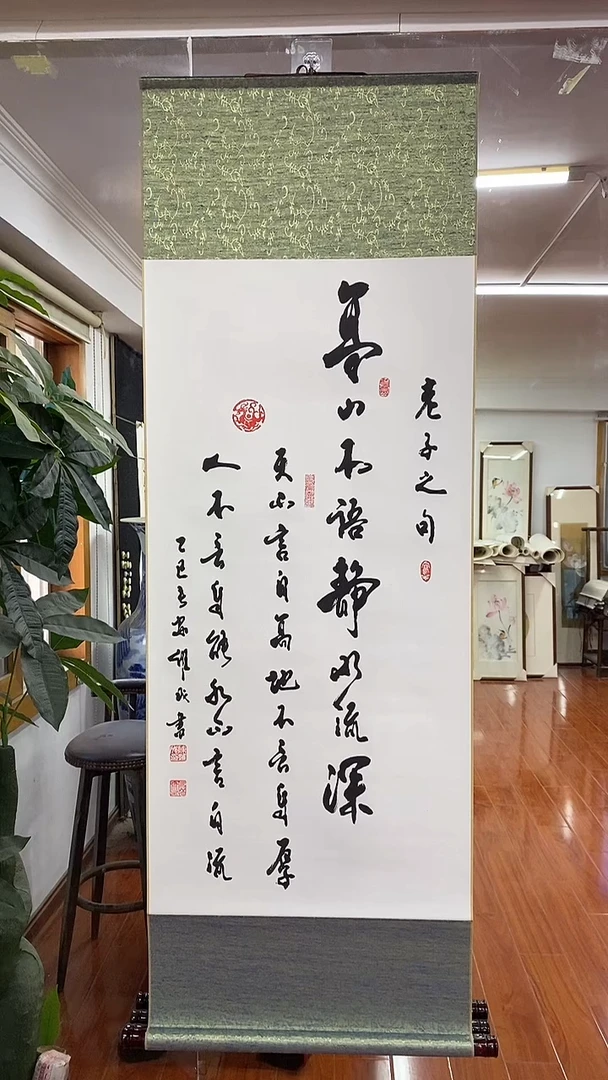 老子之句
高山不语静水流深
天不言自高地不言自厚
人不言自能水不言自流
乙巳 书